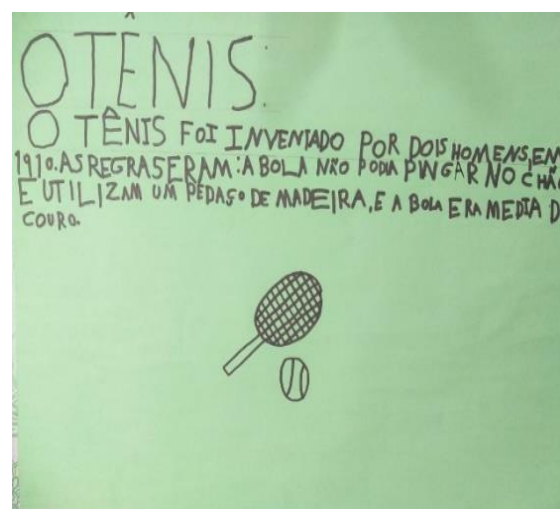 O TÊNIS:
O TÊNIS FOI INVENTADO POR DOIS HOMENS, EM
1910. AS REGRAS ERAM: A BOLA NÃO PODIA PINGAR NO CHÃO
E UTILIZAM UM PEDAÇO DE MADEIRA, E A BOLA ERA MEDIA D
COURO.